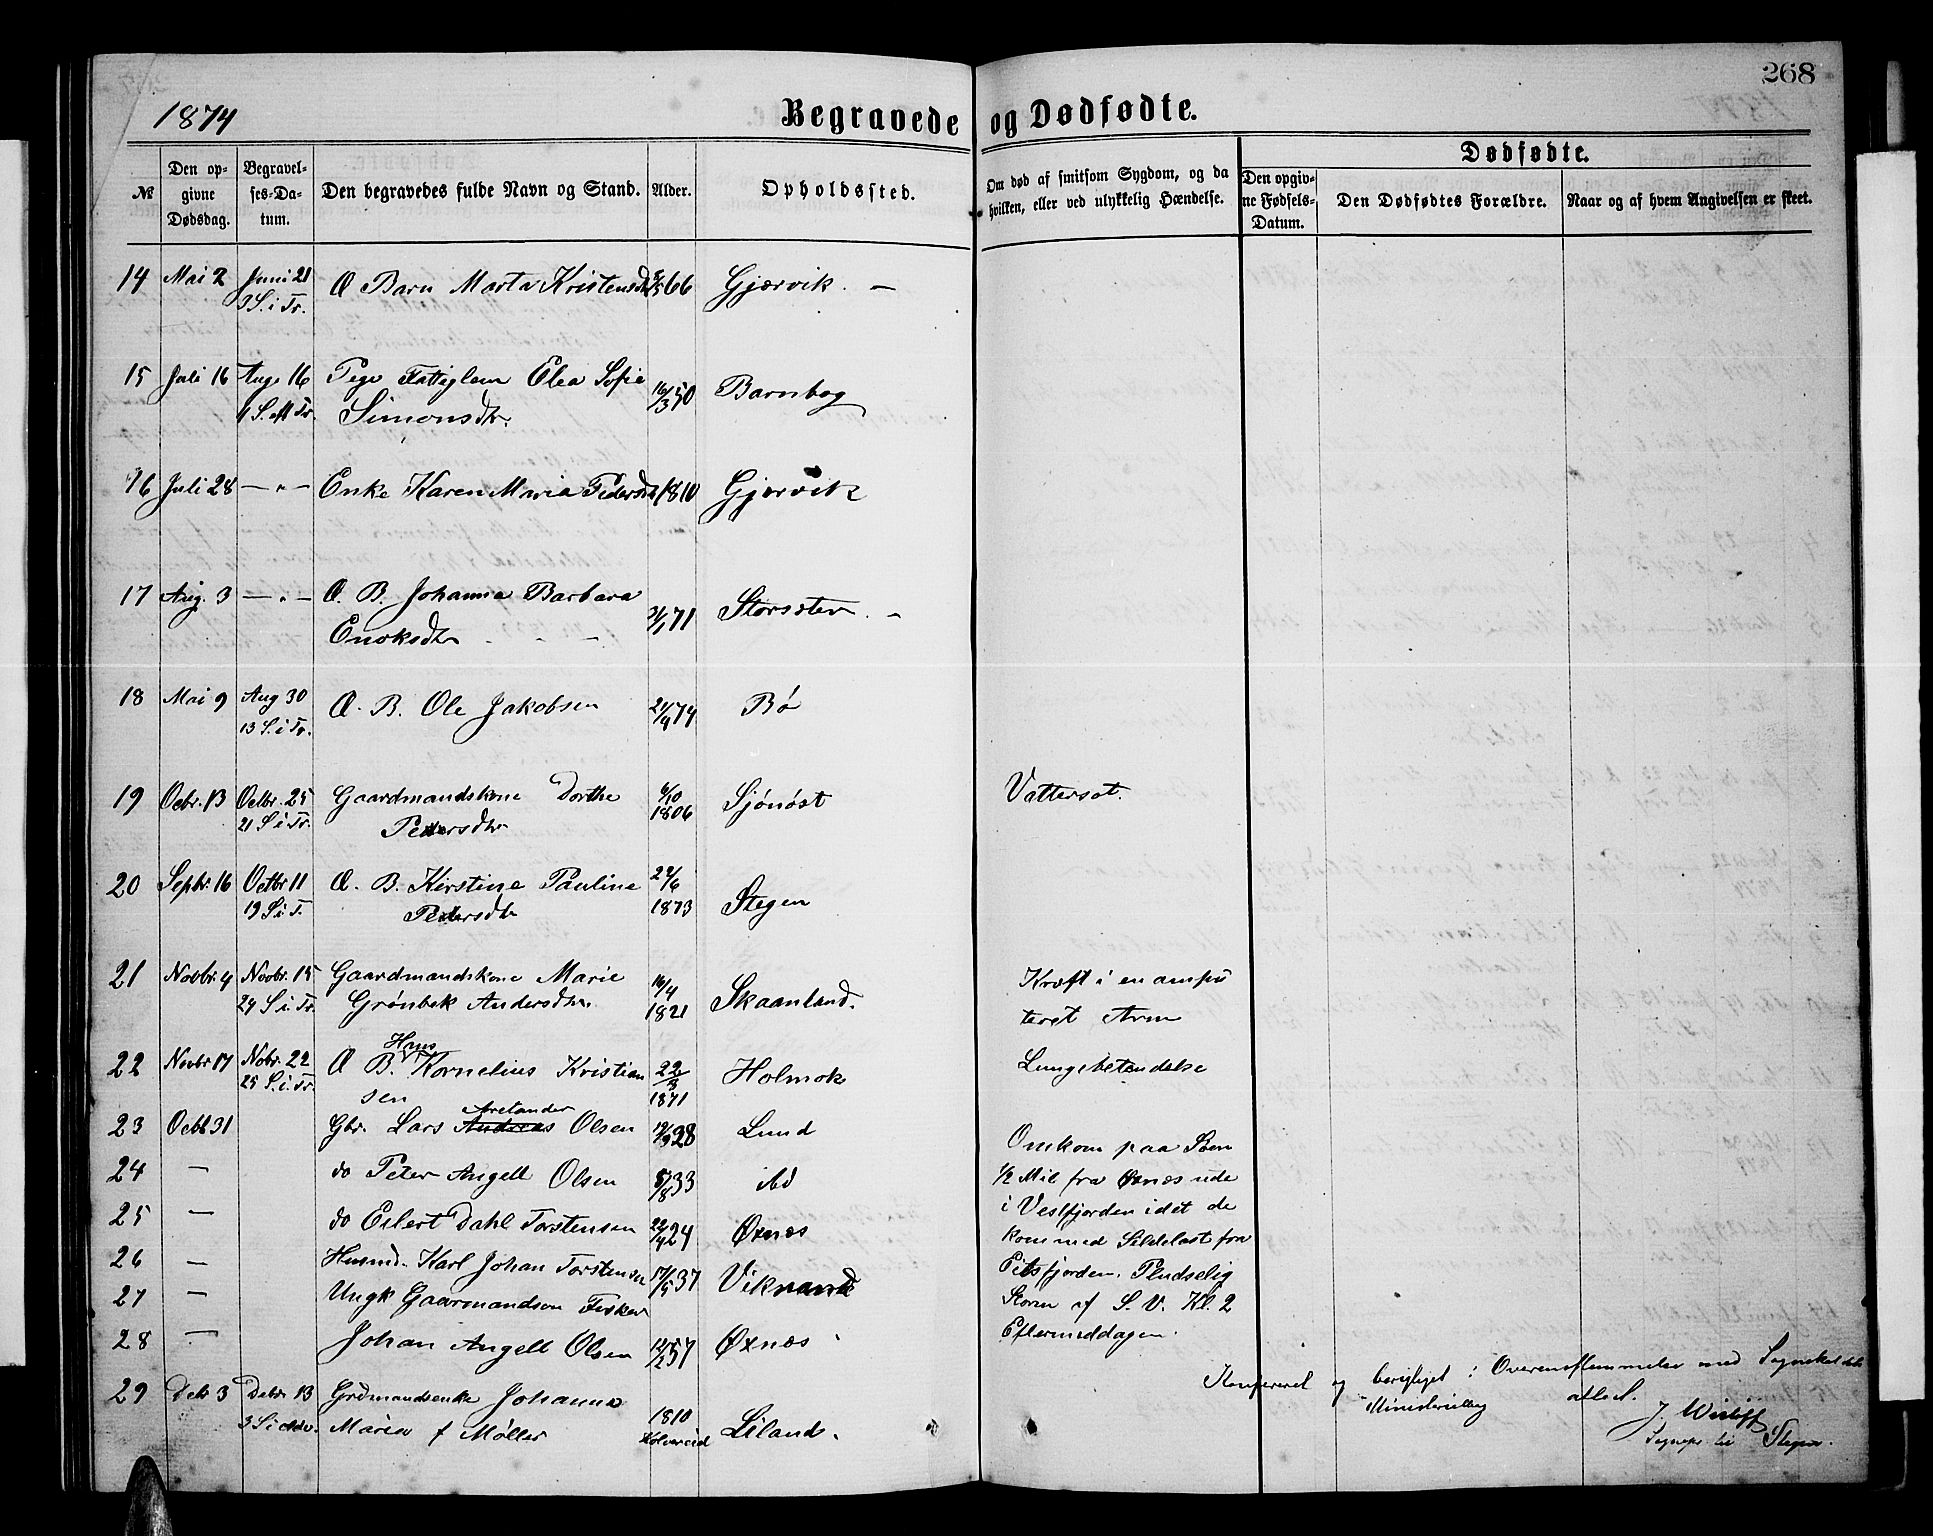 268
1874
Begravede og Dødfødte.
№
Den opgivne Dødsdag.
Begravelses-Datum.
Den begravedes fulde Navn og Stand.
Alder.
Opholdssted.
Om død af smitsom Sygdom, og da hvilken, eller ved ulykkelig Hændelse.
Dødfødte.
Den opgivne Fødsels-Datum.
Den Dødfødtes Forældre.
Naar og af hvem Angivelsen er skeet.
14 Mai 2 Juni 21 Æ Barn Marta Kristensdtr 66 Gjærvik. —
3 S. i Tr.
15 Juli 16 Aug. 16 Pige Fattiglem Elea Sofie 16/3 50 Barnbog
11 S. Tr. Simonsdtr.
16 Juli 28 — " — Enke Karen Maria Pedersdtr 1810 Gjærvik
17 Aug. 3 — " — Æ. B. Johanna Barbara 71 Storsæter. —
Enoksdtr
18 Mai 9 Aug 30 Æ. B. Ole Jakobsen 21/4 74 Bø
13 S. i Tr.
19 Ocbr. 13 Octbr. 25 Gaardmandskone Dorthe 6/10 Sjønøst Vattersot.
21 S. i Tr. Pedersdtr 1806
20 Septbr. 16 Octbr 11 Æ. B. Kirstine Pauline 22/6 Stegen
19 S. i T. Pedersdtr 1873
21 Novbr. 4 Novbr. 15 Gaardmandskone Marie 16/4 Skaanland. Kræft i en ampu
24 S. i. Tr. Grønbek Andersdtr. 1821 teret Arm
22 Novbr 17 Nobr. 22 Æ B. Hans Kornelius Kristian 22/3 Holmok Lungebetændelse
25 S. i. Tr. sen 1871
23 Octb 31 Gbr. Lars Andreas Aretander Olsen 19/9 28 Lund Omkom paa Søen
24 — do Peter Angell Olsen 5/8 33 ibd 1/2 Mil fra Øxnes ude
25 — do Eilert Dahl Torstensen 22/4 24 Øxnes i Vestfjorden idet de
26 — Husmd. Karl Johan Torstensen 17/5 37 Viknand kom med Sildelast fra
27 — Ungk Gaarmandsøn Fisker Eitsfjorden. Pludselig
Storm af S. V. Kl. 2
28 — Johan Angell Olsen 12/2 57 Øxnes Eftermiddagen.
29 Debr 3 Debr. 13 Grdmandsenke Johanna 1810 Liland.
3 S i Adv. Maria f Møller Kolvereid
Konfereret og berigtiget i Overensstemmelse med
Ministerialbog
Stegen.